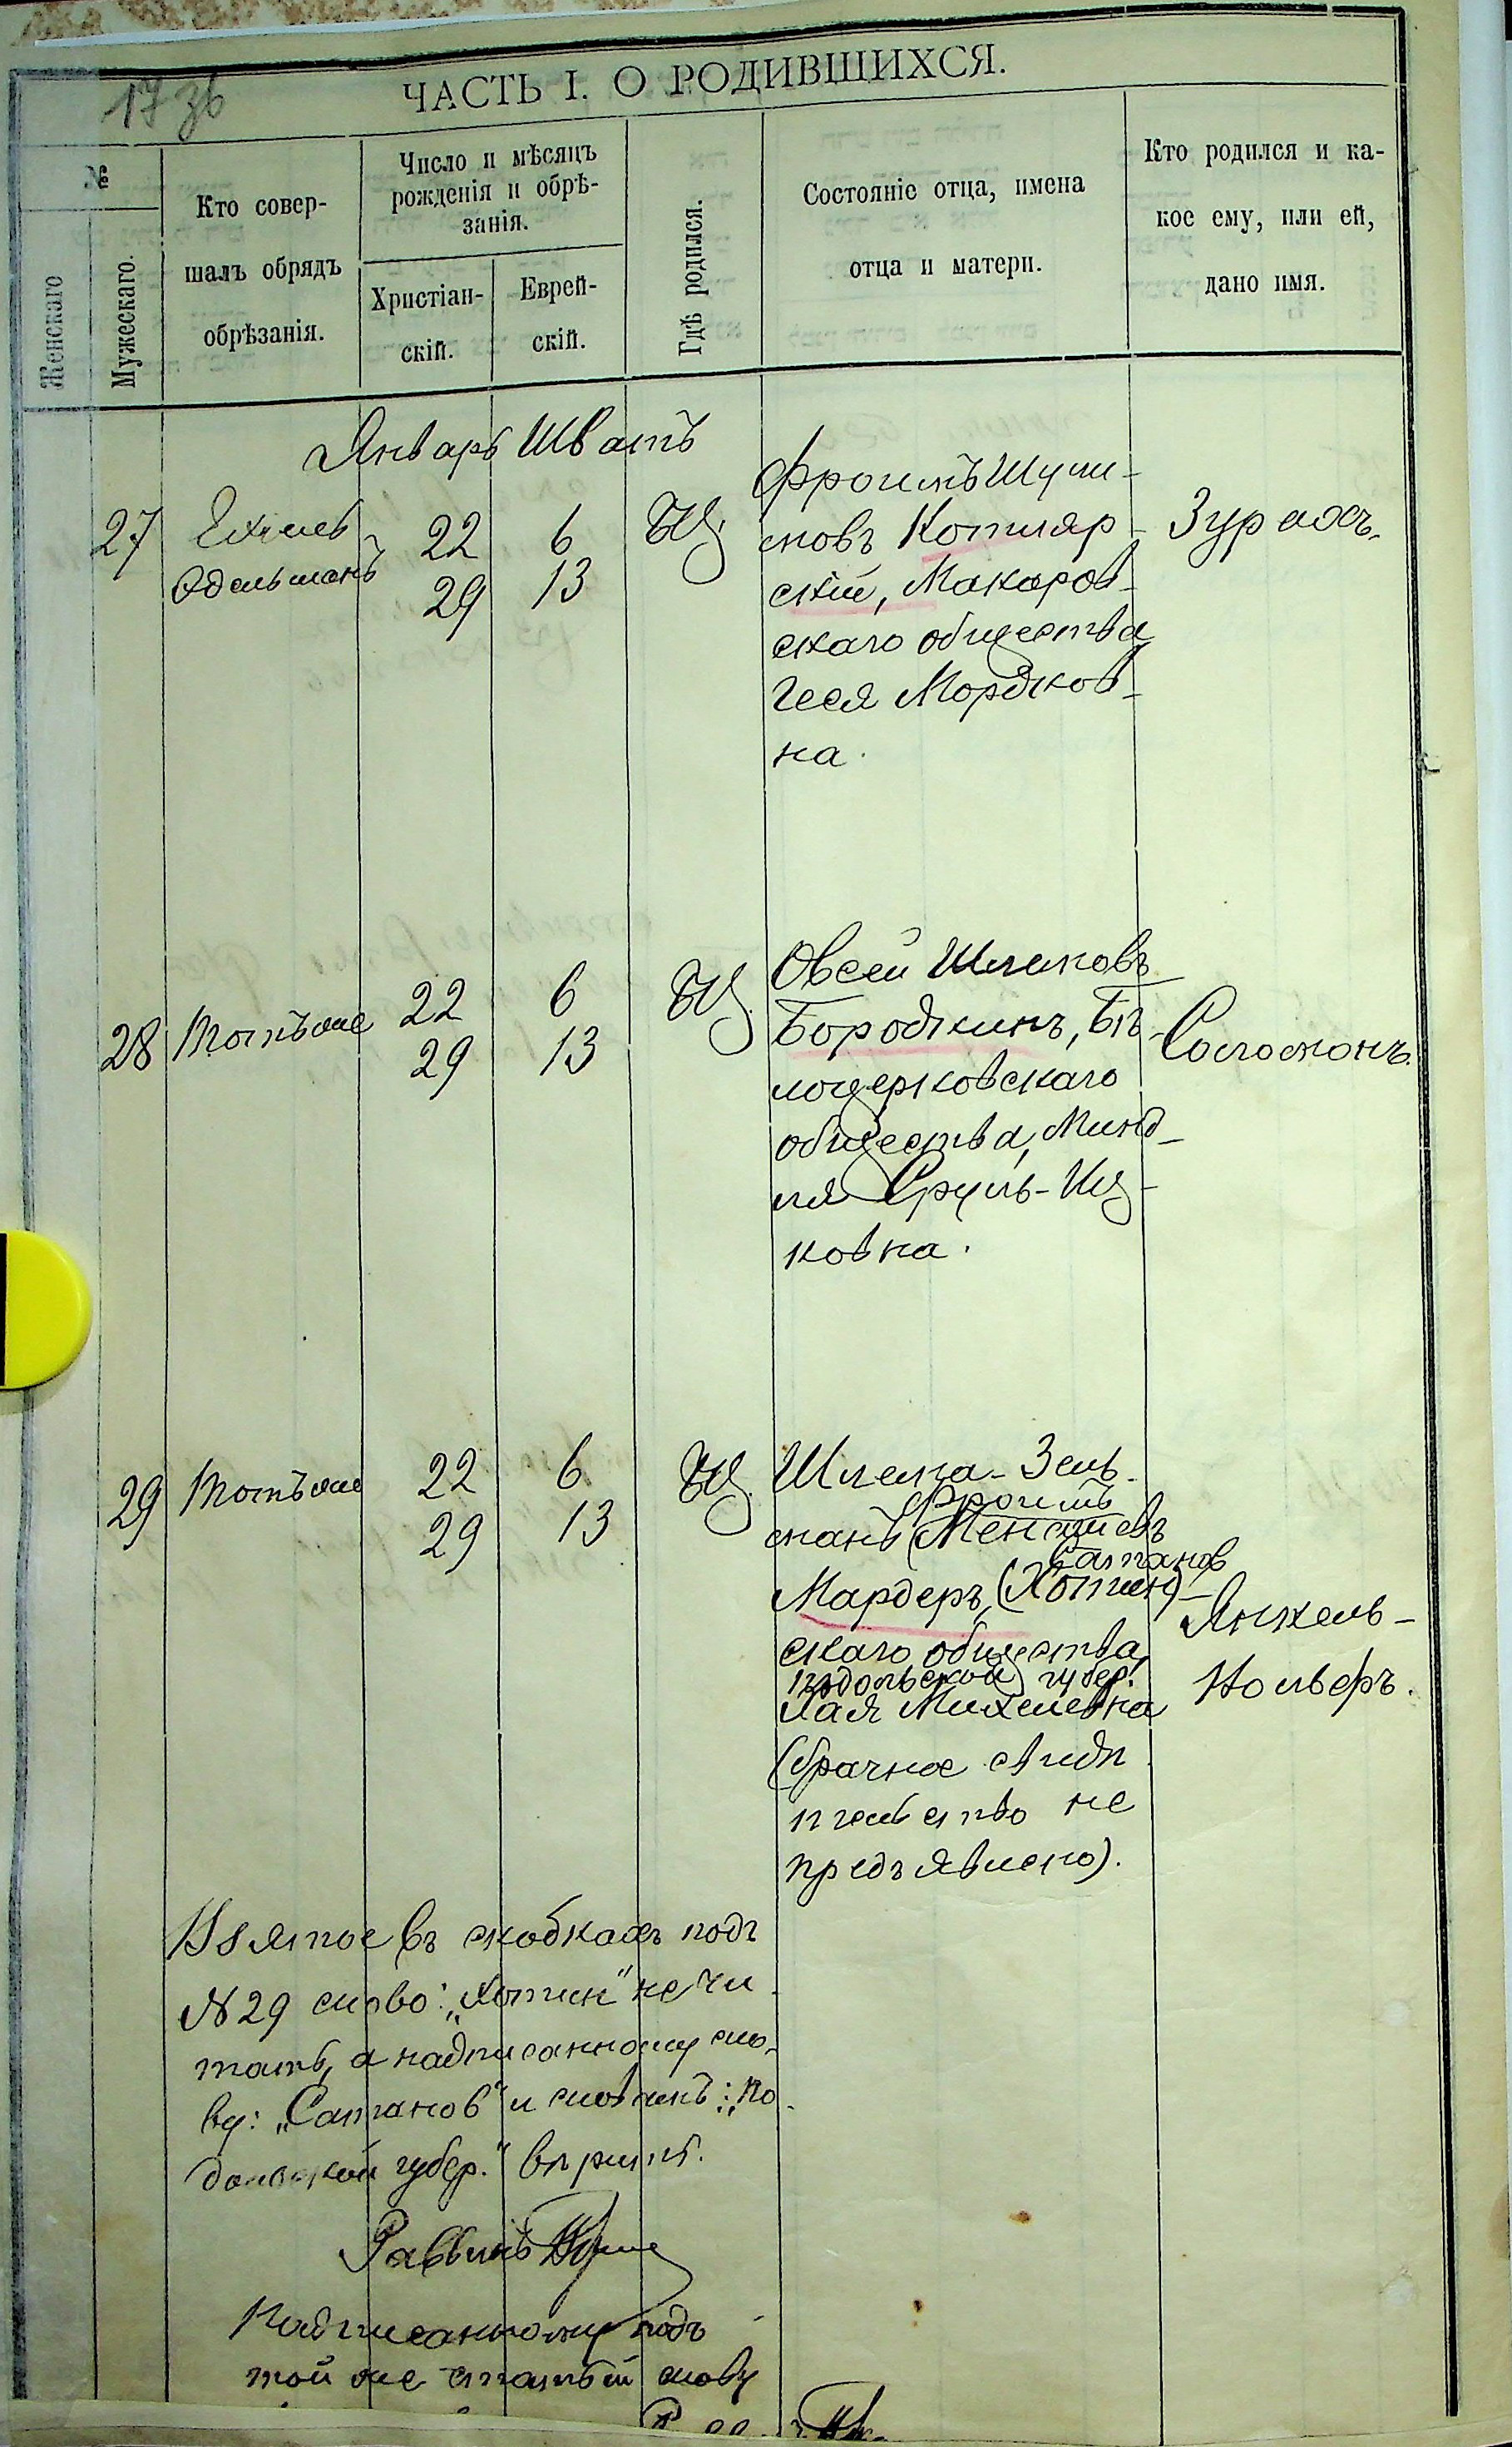 17 зв
ЧАСТЬ I. О РОДИВШИХСЯ.
№
Женскаго
Мужескаго.
Кто совер-
шалъ обрядъ
обрѣзанія.
Число и мѣсяцъ
рожденія и обрѣ-
занія.
Христіан-
скій.
Еврей-
скій.
Гдѣ родился.
Состояніе отца, имена
отца и матери.
Кто родился и ка-
кое ему, или ей,
дано имя.
Январь Шватъ
27
Ехиель
Эдельманъ
22 6
29 13
БЦ.
Фроимъ Шули-
мовъ Котляр-
скій, Макаров-
скаго общества
Геся Мордков-
на.
Зурахъ.
28
Тотъ же
22 6
29 13
БЦ.
Овсей Шлиомовъ
Бородкинъ, Бѣ-
лоцерковскаго
общества, Минд-
ля Сруль-Иц-
ковна.
Соломонъ.
29
Тотъ же
22 6
29 13
БЦ.
Шлема-Зель-
Фроимъ
манъ (Менашевъ
Сатанов
Мардеръ, (Хотин)-
скаго общества,
Подольской губер.
Хая Михелевна
(брачное свидѣ-
тельство не
предъявлено).
Янкель-
Нольверъ.
Взятое въ скобкахъ подъ
№ 29 слово: „Хотин" не чи-
тать, а надписанному сло-
ву: „Сатанов" и словамъ: „По-
дольской губер." вѣрить.
Раввинъ
Надписанному подъ
той же статьей слову